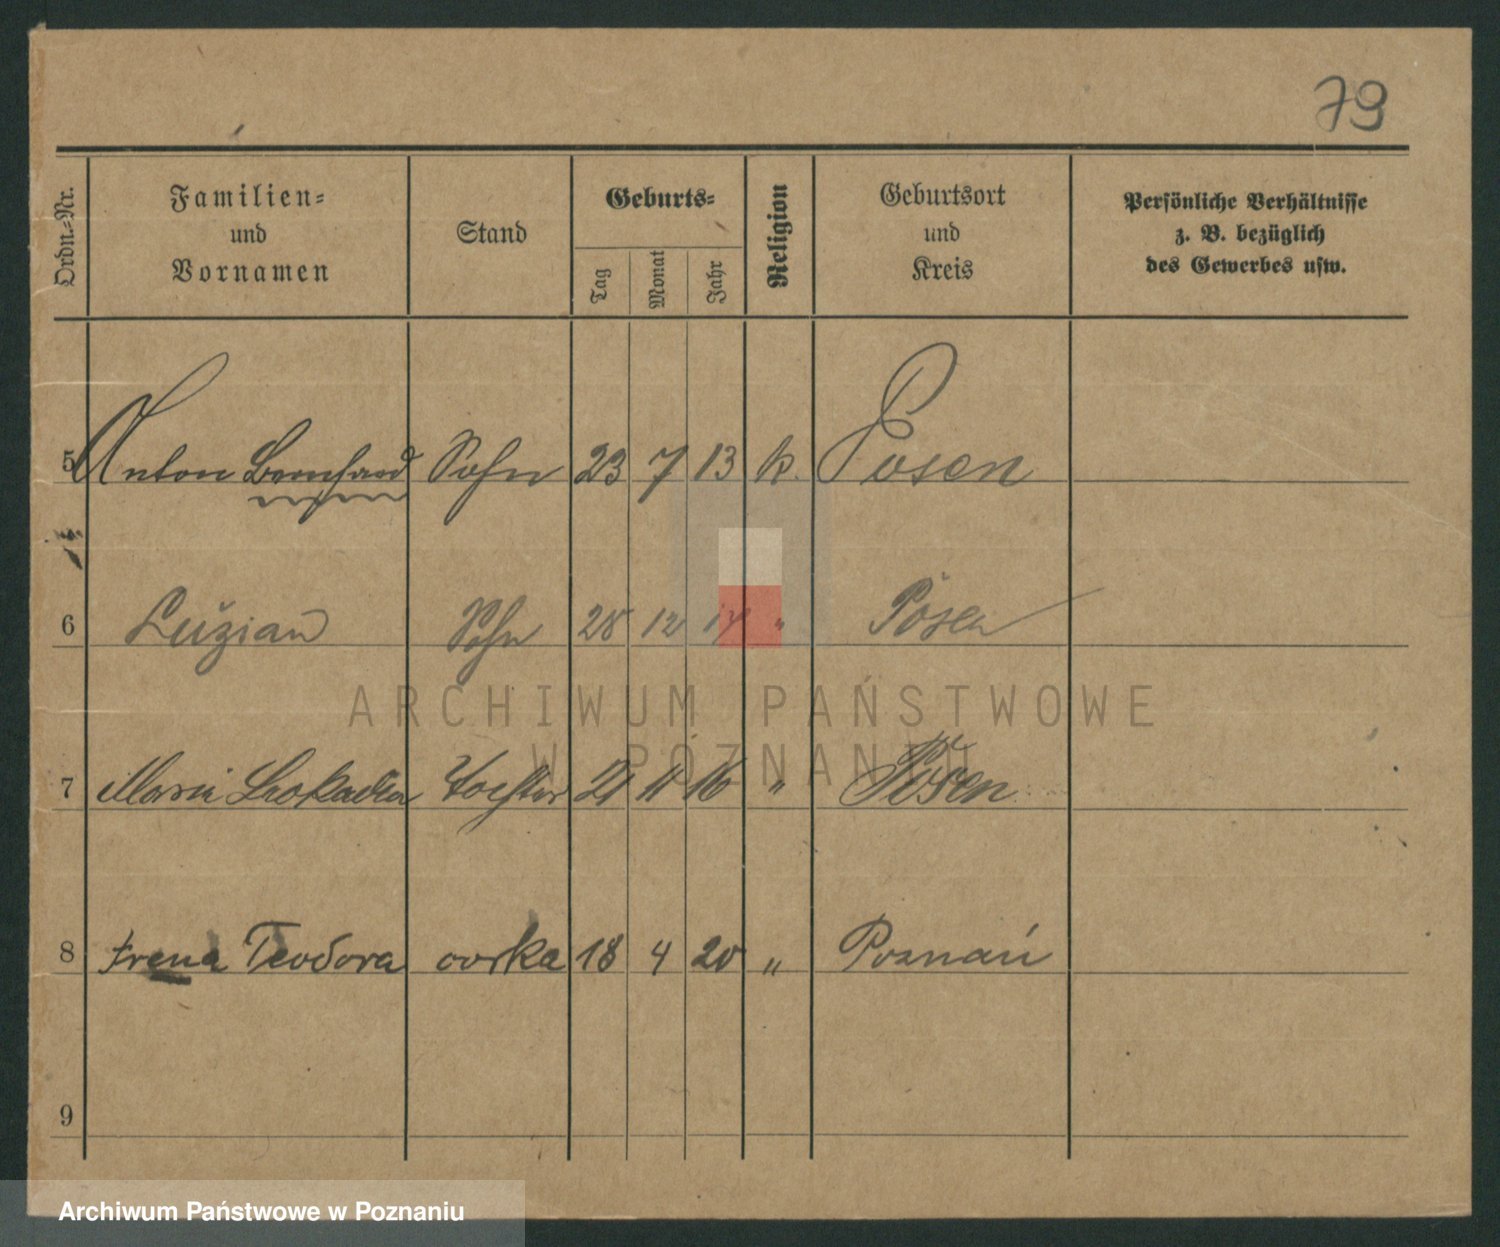 79
Ordn.-Nr.
Familien-
und
Vornamen
Stand
Geburts-
Tag
Monat
Jahr
Religion
Geburtsort
und
Kreis
Persönliche Verhältnisse
z. B. bezüglich
des Gewerbes usw.
5 Anton Bernhard Sohn 23 7 13 k. Posen
6 Luzian Sohn 28 12 14 " Posen
ARCHIWUM PAŃSTWOWE
W POZNANIU
7 Maria Leokadia Tochter 21 11 16 " Posen
8 Irena Teodora córka 18 4 20 " Poznań
9
Archiwum Państwowe w Poznaniu